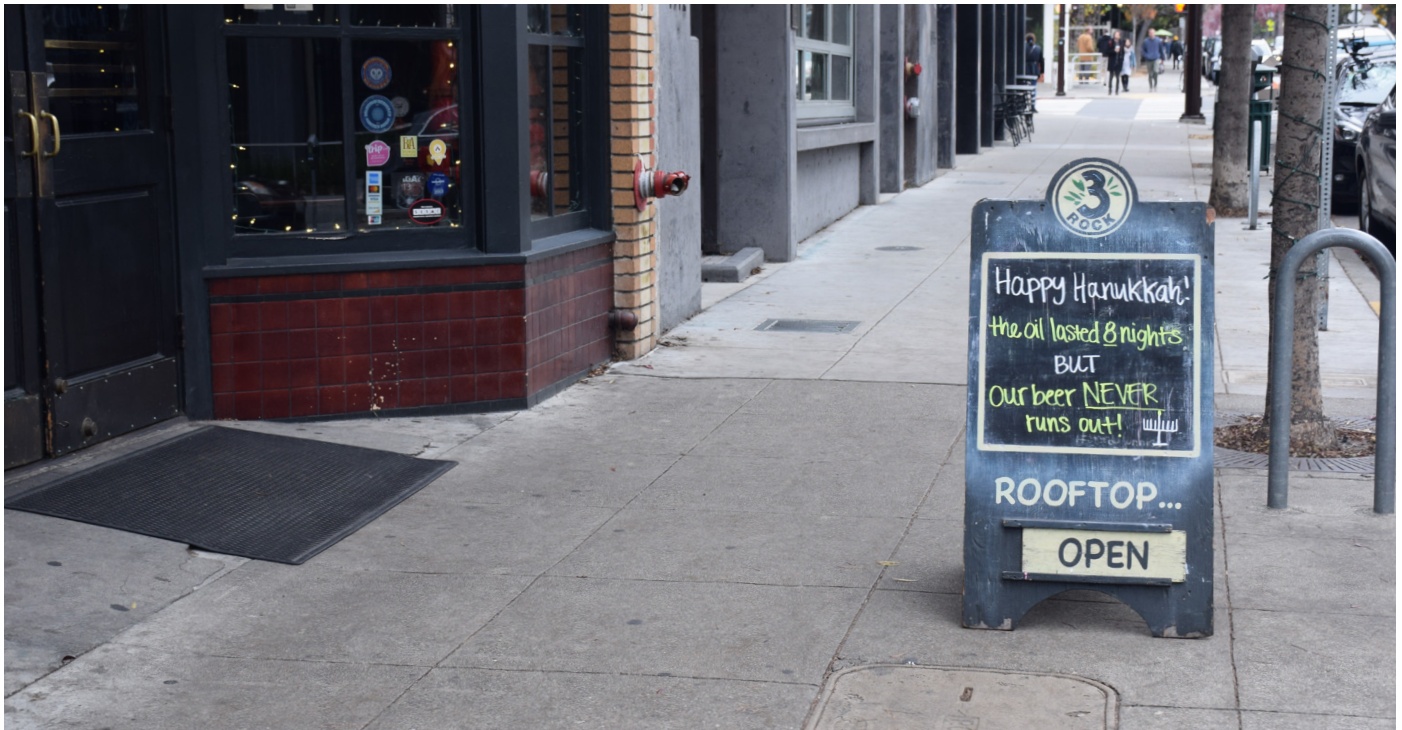 3
ROCK
Happy Hanukkah!
the oil lasted 8 nights
BUT
Our beer NEVER
runs out!
ROOFTOP...
OPEN